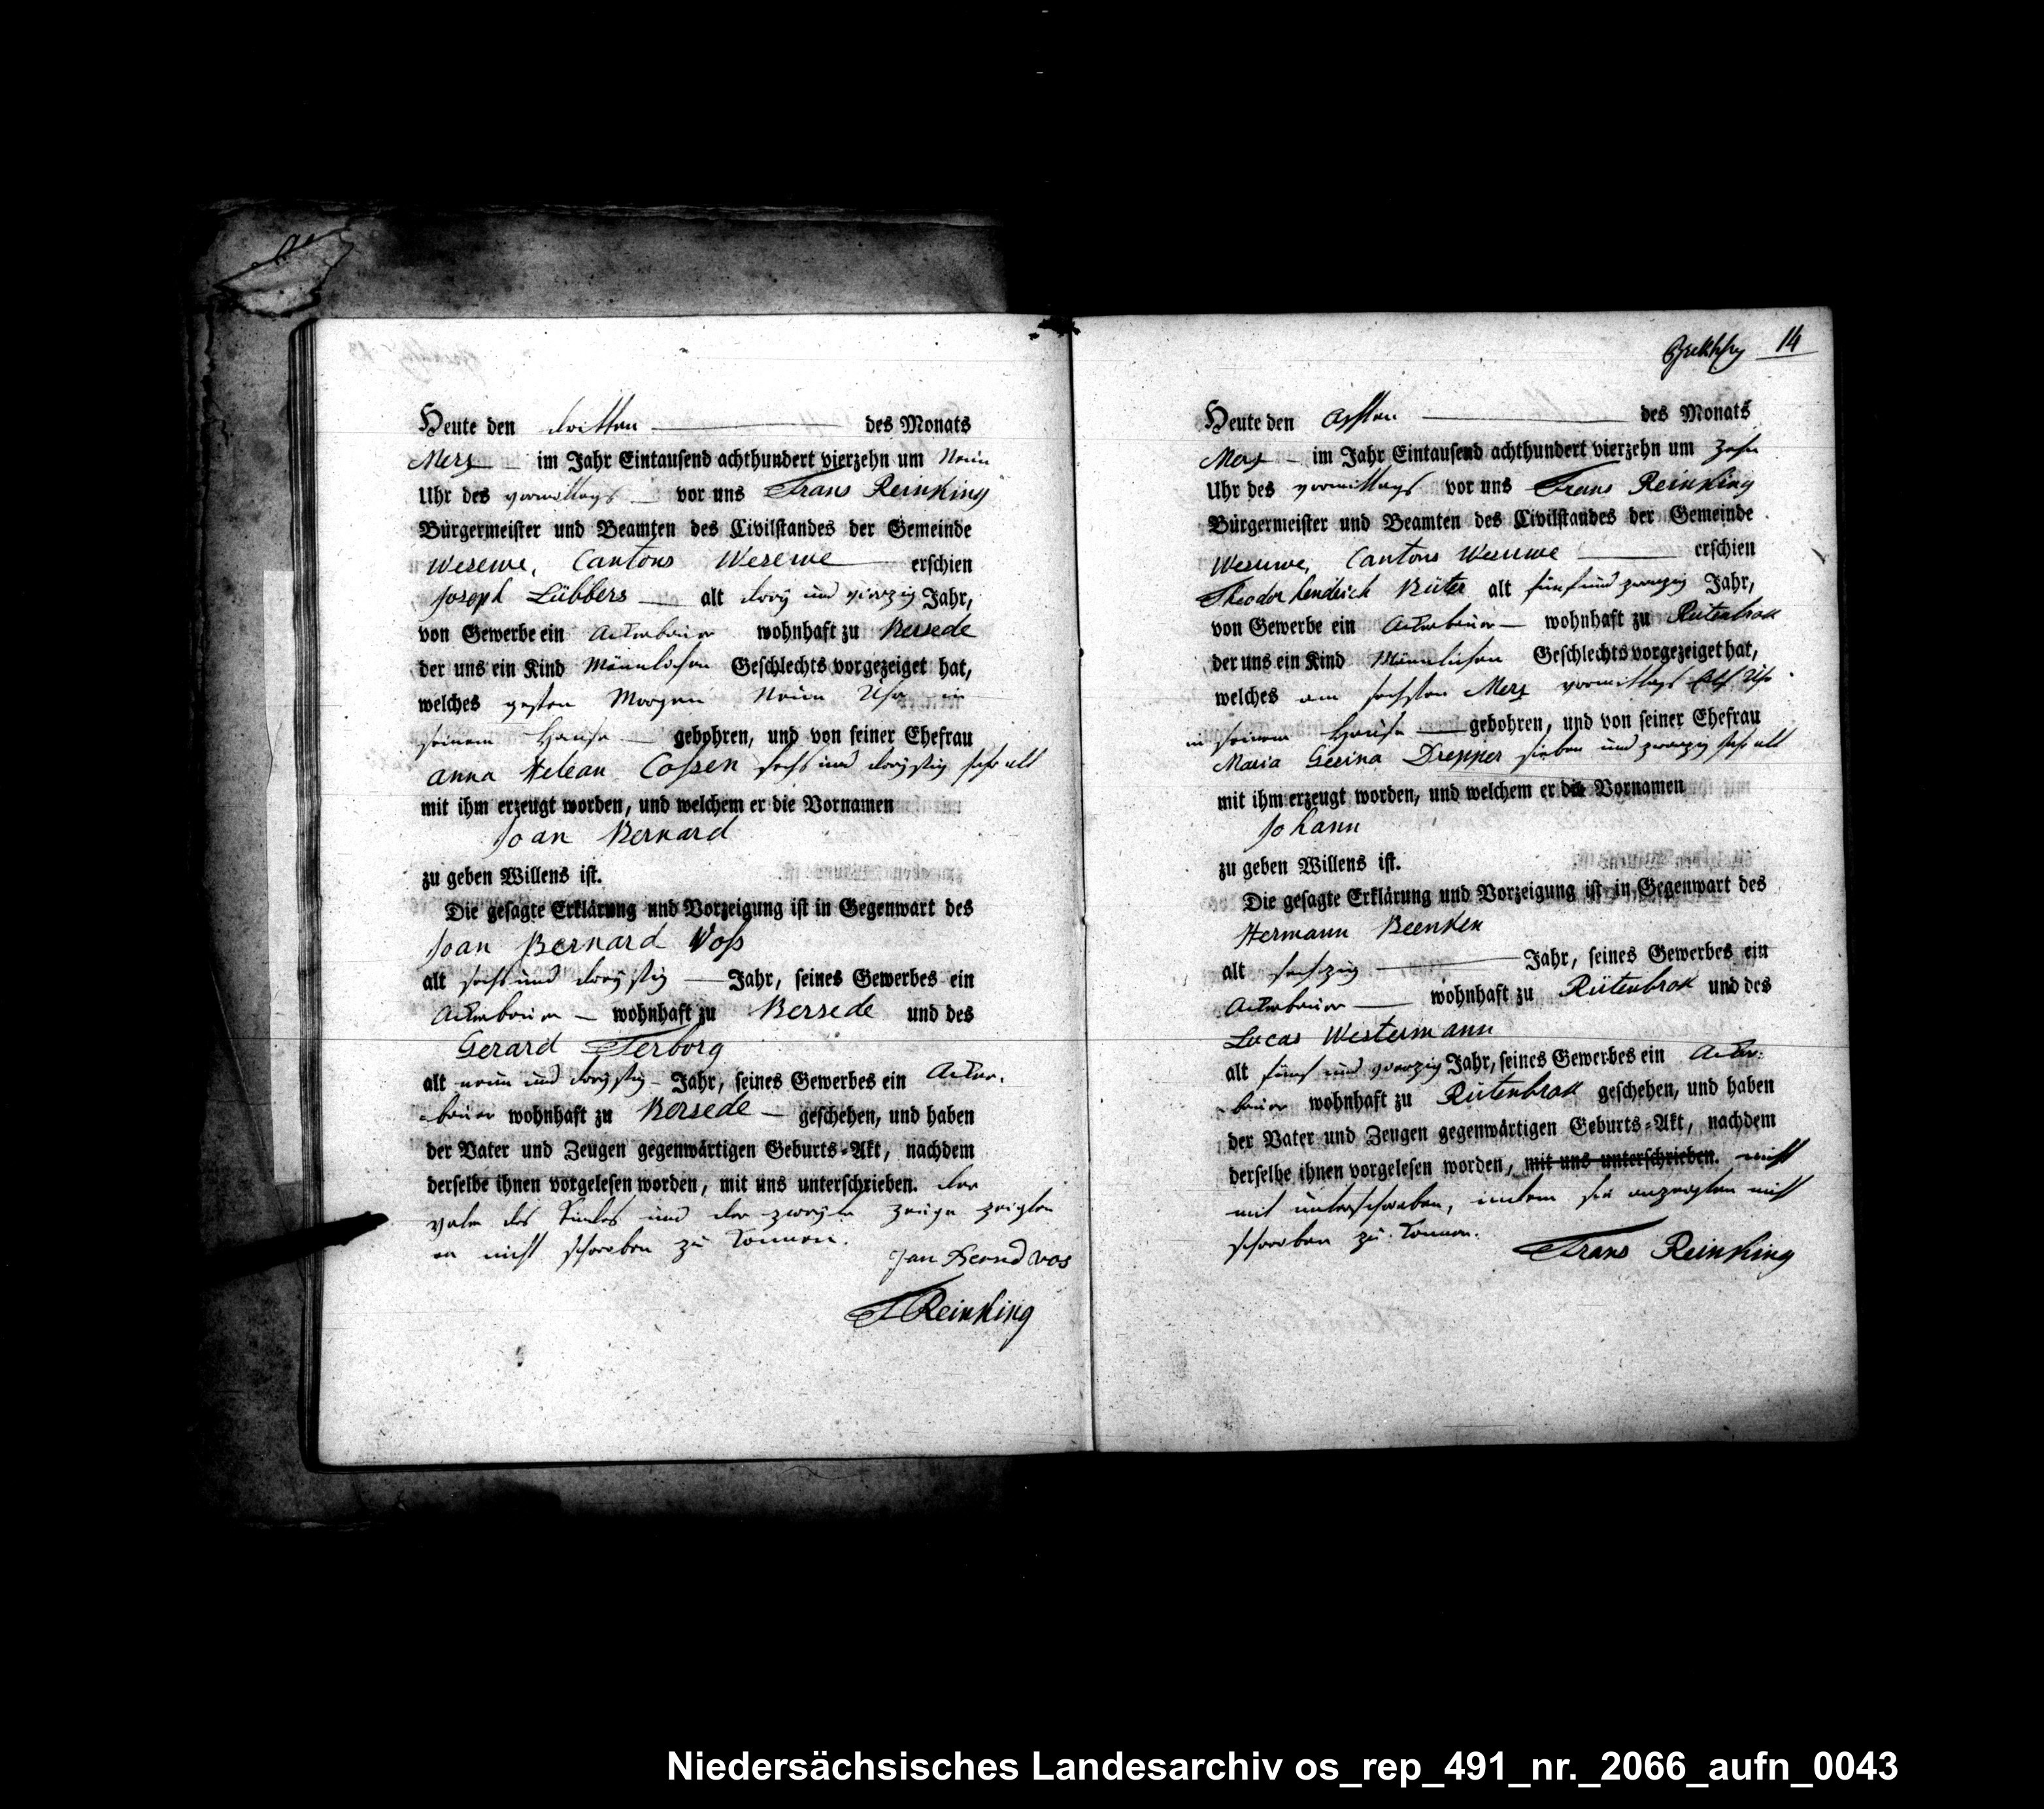 Heute den dritten des Monats
Merz im Jahr Eintausend achthundert vierzehn um Neun
Uhr des vormittags vor uns Frans Reinking
Bürgermeister und Beamten des Civilstandes der Gemeinde
Wesewe, Cantons Wesewe erschien
Joseph Lübbers alt drey und vierzig Jahr,
von Gewerbe ein Ackerbauer wohnhaft zu Bersede
der uns ein Kind Männlichen Geschlechts vorgezeiget hat,
welches gestern Morgen Neun Uhr in
seinem Hause gebohren, und von seiner Ehefrau
Anna Helean Cossen sechs und dreyssig Jahr alt
mit ihm erzeugt worden, und welchem er die Vornamen
Joan Bernard
zu geben Willens ist.
Die gesagte Erklärung und Vorzeigung ist in Gegenwart des
Joan Bernard Voss
alt sechs und dreyssig Jahr, seines Gewerbes ein
Ackerbauer wohnhaft zu Bersede und des
Gerard Terborg
alt neun und dreyssig Jahr, seines Gewerbes ein Acker-
bauer wohnhaft zu Bersede geschehen, und haben
der Vater und Zeugen gegenwärtigen Geburts-Akt, nachdem
derselbe ihnen vorgelesen worden, mit uns unterschrieben. der
vater des Kindes und der zweyte Zeuge zeigten
an nicht schreiben zu können.
Jan Bernd vos
F Reinking
14
Heute den achten des Monats
Merz im Jahr Eintausend achthundert vierzehn um zehn
Uhr des vormittags vor uns Frans Reinking
Bürgermeister und Beamten des Civilstandes der Gemeinde
Wesuwe, Cantons Wesuwe erschien
Theodor Hendrich Rüter alt fünf und zwanzig Jahr,
von Gewerbe ein Ackerbauer wohnhaft zu Rütenbrok
der uns ein Kind Männlichen Geschlechts vorgezeiget hat,
welches am sechsten Merz vormittags Elf Uhr
in seinem Hause gebohren, und von seiner Ehefrau
Maria Gesina Drepper sieben und zwanzig Jahr alt
mit ihm erzeugt worden, und welchem er die Vornamen
Johann
zu geben Willens ist.
Die gesagte Erklärung und Vorzeigung ist in Gegenwart des
Hermann Beenken
alt sechzig Jahr, seines Gewerbes ein
Ackerbauer wohnhaft zu Rütenbrok und des
Lucas Westermann
alt fünf und vierzig Jahr, seines Gewerbes ein Acker-
bauer wohnhaft zu Rütenbrok geschehen, und haben
der Vater und Zeugen gegenwärtigen Geburts-Akt, nachdem
derselbe ihnen vorgelesen worden, mit uns unterschrieben. nicht
mit unterschrieben, indem sie anzeigten nicht
schreiben zu können.
Frans Reinking
Niedersächsisches Landesarchiv os_rep_491_nr._2066_aufn_0043